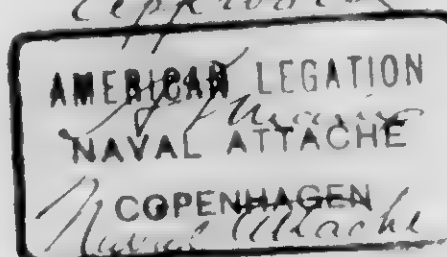 Approved
AMERICAN LEGATION
NAVAL ATTACHE
COPENHAGEN
Naval Attache